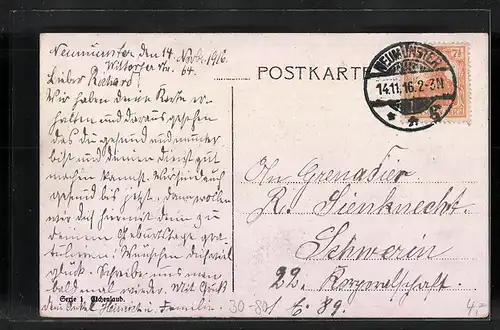 Neumünster den 14. Novbr. 1916
Wittorfer Str. 64.
Lieber Richard!
Wir haben deine Karte er-
halten und daraus gesehen
das du gesund und munter
bist und deinen Dienst gut
machen kannst. Wir sind auch
gesund bis jetzt, dann wollen
wir dich hiermit dein zu
deinem Geburtstage gra-
tulieren. Wünschen dir viel
glück. Schreibe uns man
bald mal wieder. Mit Gruß
dein Onkel Heinrich u. Familie.
Serie 1. Eichenlaub.
POSTKARTE
NEUMÜNSTER
14.11.16. 2-3N
* *
7½
An Grenadier
R. Sienknecht.
Schwerin
22. Korporalschaft.
30-801 t. 89.
4.-